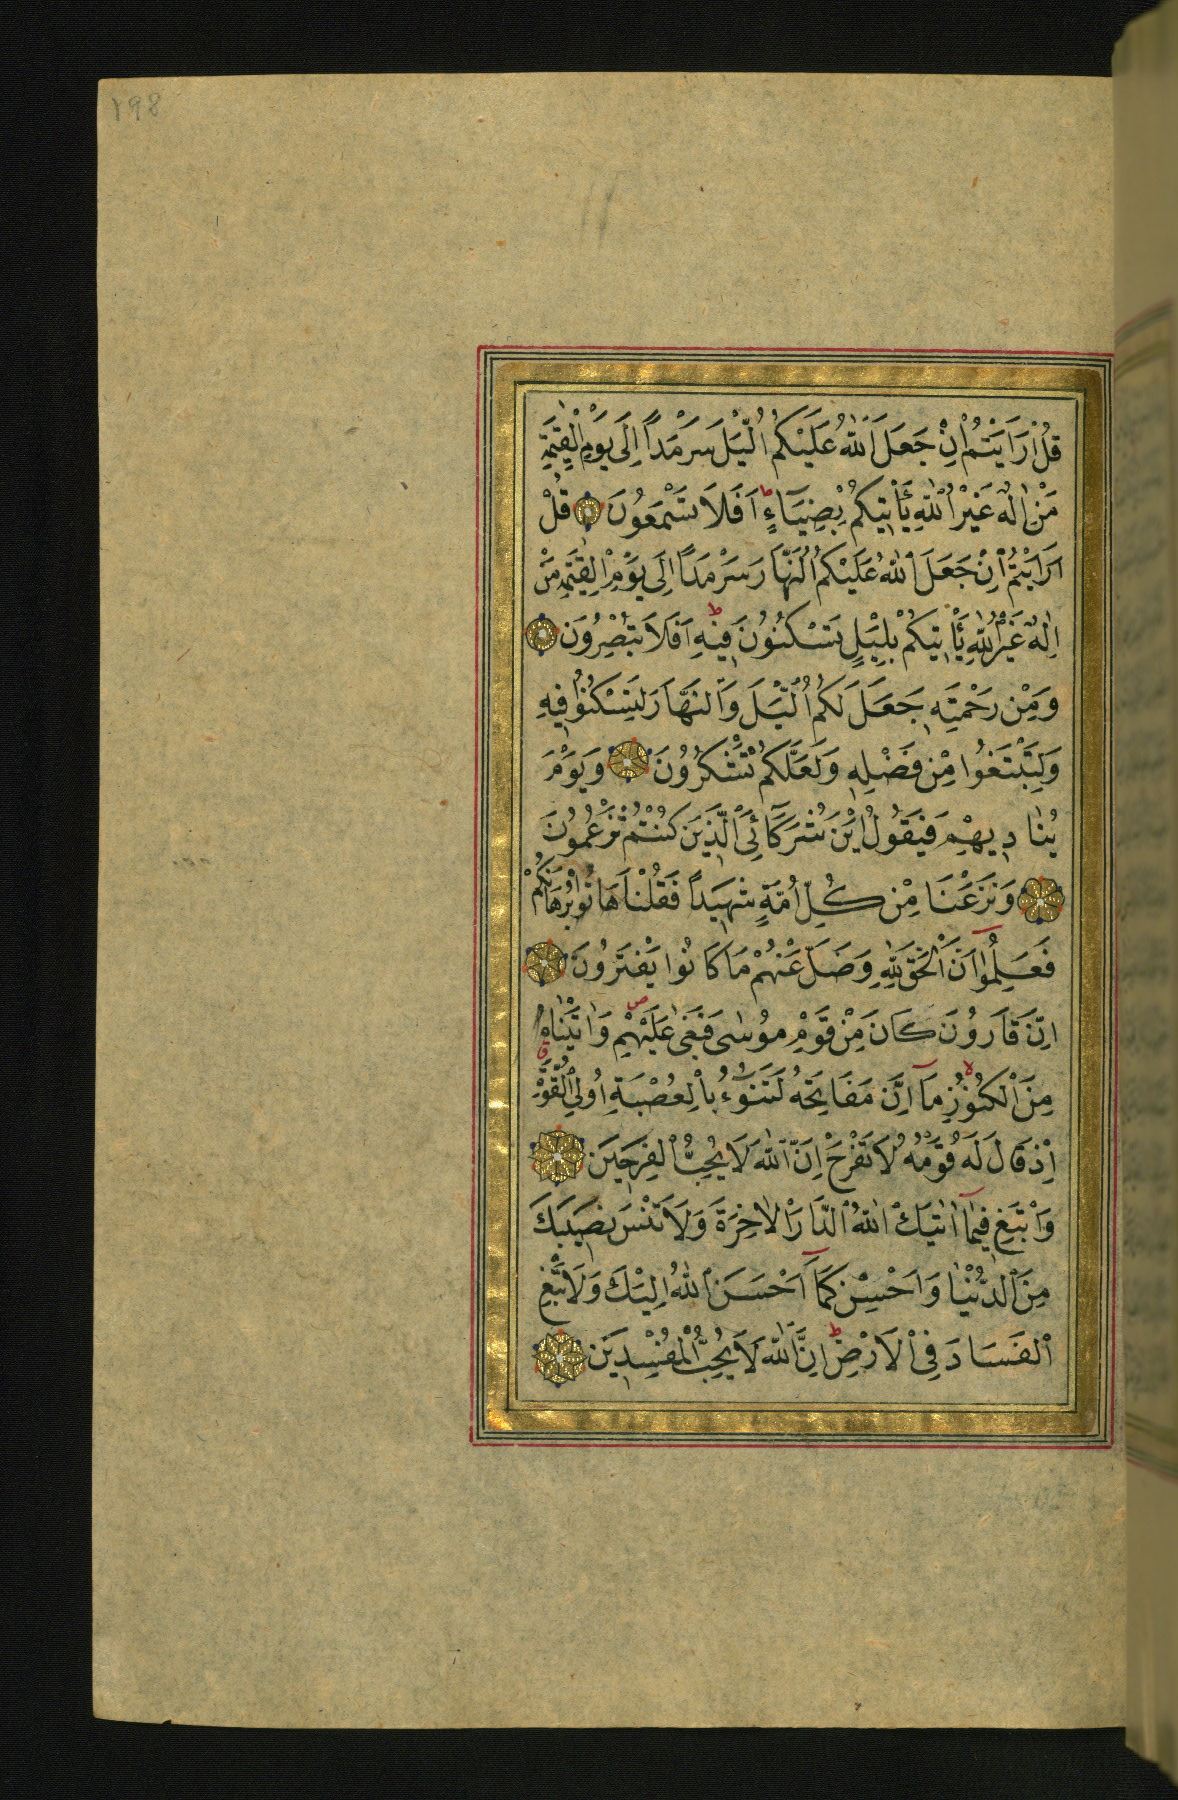 ١٩٨
قُلْ اَرَاَيْتُمْ اِنْ جَعَلَ اللّٰهُ عَلَيْكُمُ الَّيْلَ سَرْمَدًا اِلٰى يَوْمِ الْقِيٰمَةِ
مَنْ اِلٰهٌ غَيْرُ اللّٰهِ يَأْتِيكُمْ بِضِيَٓاءٍ ط اَفَلَا تَسْمَعُونَ قُلْ
اَرَاَيْتُمْ اِنْ جَعَلَ اللّٰهُ عَلَيْكُمُ النَّهَارَ سَرْمَدًا اِلٰى يَوْمِ الْقِيٰمَةِ مَنْ
اِلٰهٌ غَيْرُ اللّٰهِ يَأْتِيكُمْ بِلَيْلٍ تَسْكُنُونَ فِيهِ ط اَفَلَا تُبْصِرُونَ
وَمِنْ رَحْمَتِهِ جَعَلَ لَكُمُ الَّيْلَ وَالنَّهَارَ لِتَسْكُنُوا فِيهِ
وَلِتَبْتَغُوا مِنْ فَضْلِهِ وَلَعَلَّكُمْ تَشْكُرُونَ وَيَوْمَ
يُنَادِيهِمْ فَيَقُولُ اَيْنَ شُرَكَٓائِىَ الَّذِينَ كُنْتُمْ تَزْعُمُونَ
وَنَزَعْنَا مِنْ كُلِّ اُمَّةٍ شَهِيدًا فَقُلْنَا هَاتُوا بُرْهَانَكُمْ
فَعَلِمُٓوا اَنَّ الْحَقَّ لِلّٰهِ وَضَلَّ عَنْهُمْ مَا كَانُوا يَفْتَرُونَ
اِنَّ قَارُونَ كَانَ مِنْ قَوْمِ مُوسٰى فَبَغٰى عَلَيْهِمْ ص وَاٰتَيْنَاهُ
مِنَ الْكُنُوزِ مَٓا اِنَّ مَفَاتِحَهُ لَتَنُٓوءُ بِالْعُصْبَةِ اُولِى الْقُوَّةِ ق
اِذْ قَالَ لَهُ قَوْمُهُ لَا تَفْرَحْ اِنَّ اللّٰهَ لَا يُحِبُّ الْفَرِحِينَ
وَابْتَغِ فِيمَٓا اٰتٰيكَ اللّٰهُ الدَّارَ الْاٰخِرَةَ وَلَا تَنْسَ نَصِيبَكَ
مِنَ الدُّنْيَا وَاَحْسِنْ كَمَٓا اَحْسَنَ اللّٰهُ اِلَيْكَ وَلَا تَبْغِ
الْفَسَادَ فِى الْاَرْضِ ط اِنَّ اللّٰهَ لَا يُحِبُّ الْمُفْسِدِينَ